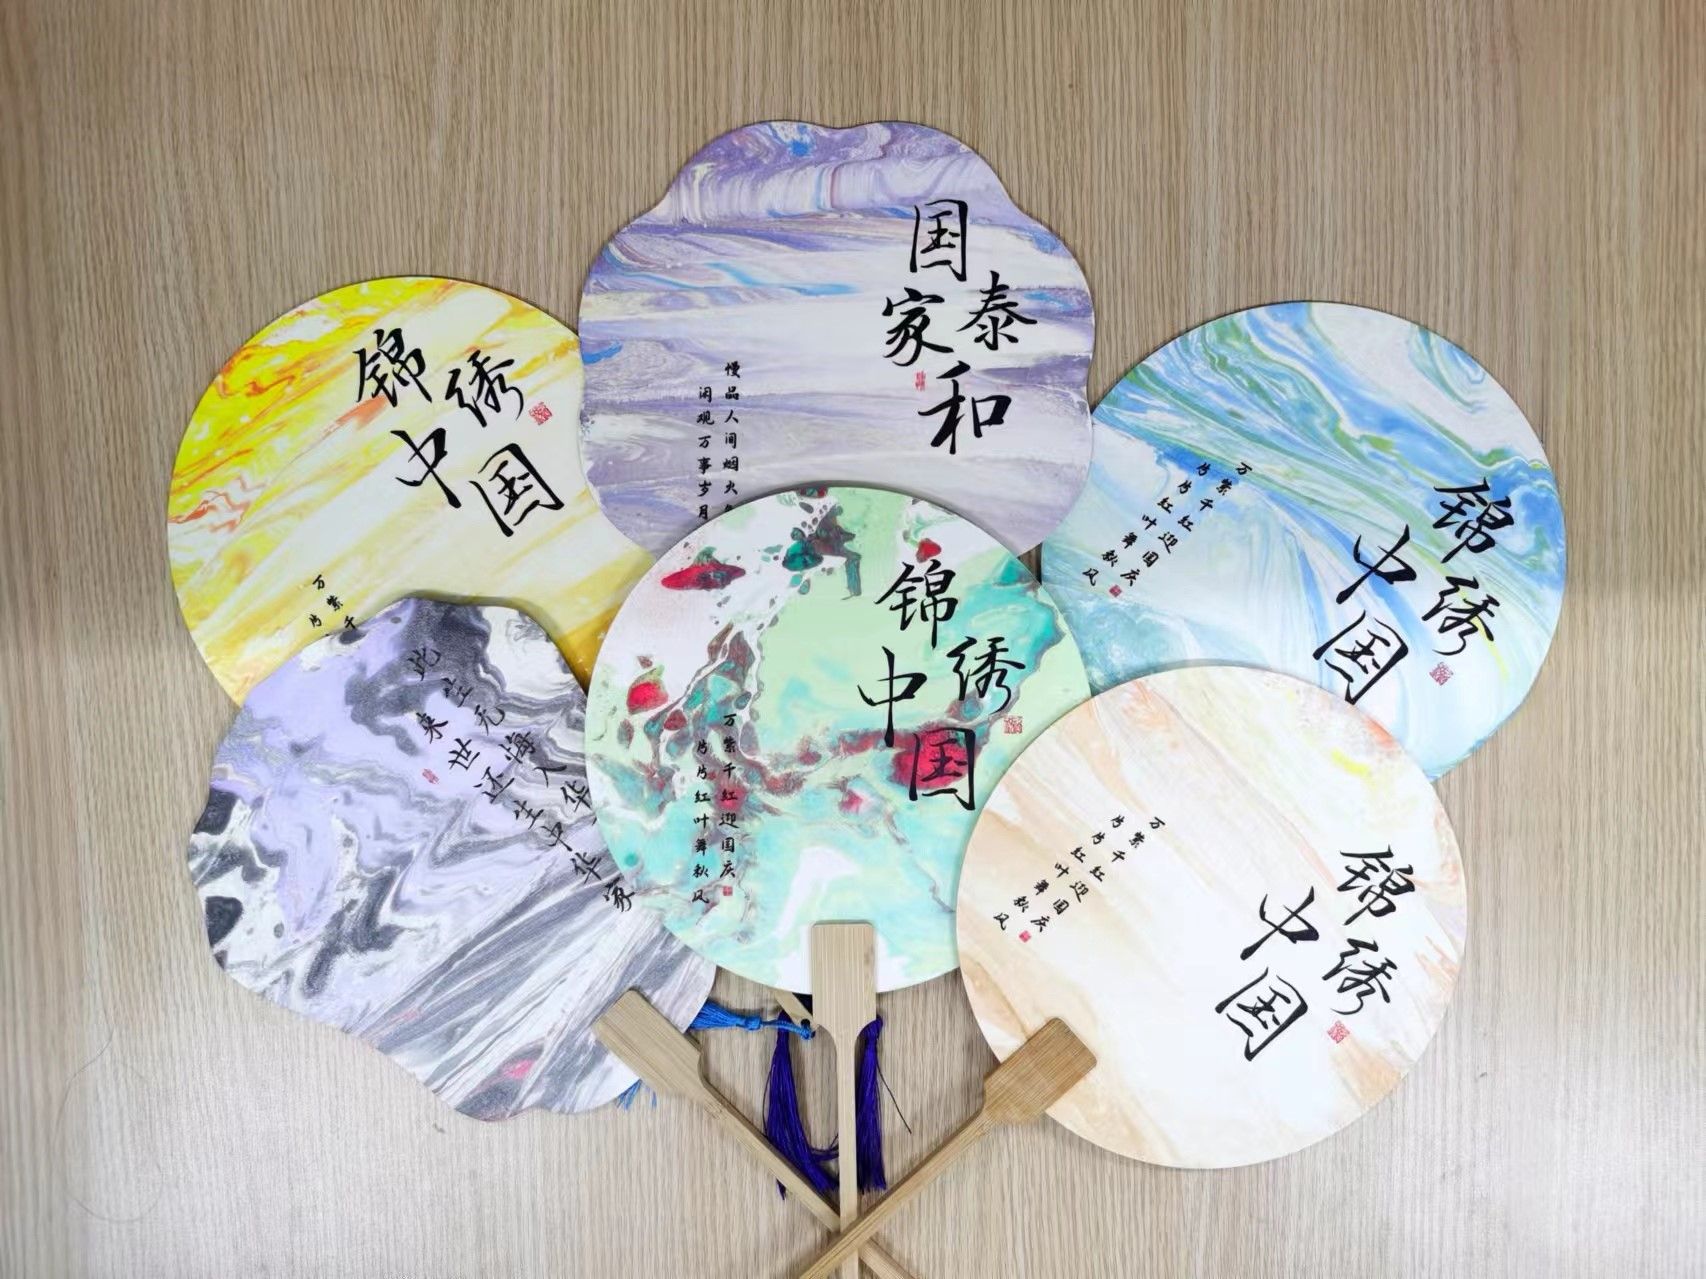 国泰
家和
慢品人间烟火
闲观万事岁月
锦绣
中国
万紫千
片
锦绣
中国
万紫千红迎国庆
片片红叶舞秋风
此生无悔入华
来世还生中华家
锦绣
中国
万紫千红迎国庆
片片红叶舞秋风
锦绣
中国
万紫千红迎国庆
片片红叶舞秋风